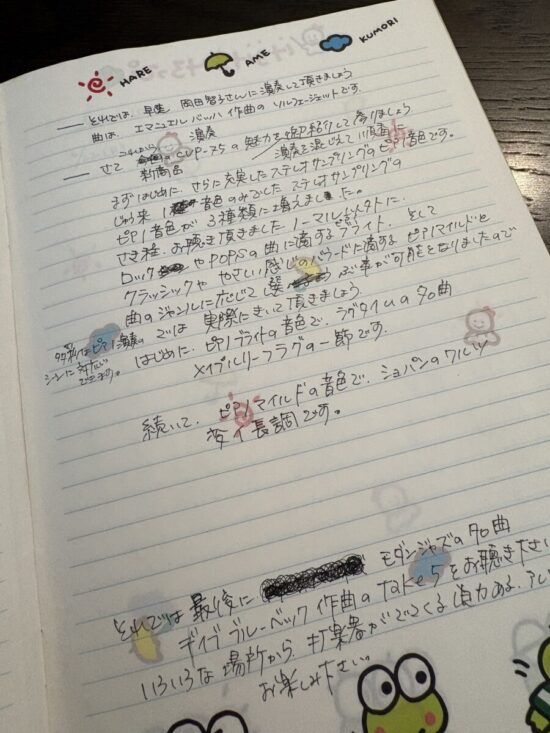 HARE
AME
KUMORI
それでは、早速 岡田智子さんに演奏して頂きましょう
曲は、エマニュエル バッハ 作曲の ソルフェージェットです。
演奏
さて これから 新商品 CVP-75の魅力を御紹介して参りましょう
演奏を混じえて
まずはじめに、さらに充実したステレオサンプリングのピアノ音色です。
じゅう来 1音色のみでした ステレオサンプリングの
ピアノ音色が 3種類に増えました。
さき程、お聴き頂きました ノーマルピアノに、
ロック やPOPSの曲に適するブライト、そして
クラッシックや やさしい感じのバラードに適する ピアノマイルドと
曲のジャンルに応じて 選ぶ事が可能となりましたので
では 実際にきいて頂きましょう。
多彩なピアノ演奏の
シーンに対応で
できます。
はじめに、ピアノブライトの音色で、ラグタイムの名曲
メイプルリーフラグの一節です。
続いて、ピアノマイルドの音色で、ショパンのワルツ
変イ長調です。
それでは 最後に モダンジャズの名曲
デイブ ブルーベック 作曲の take 5 をお聴きください
いろいろな 場所から 打楽器がでてくる 迫力ある、
お楽しみ下さい